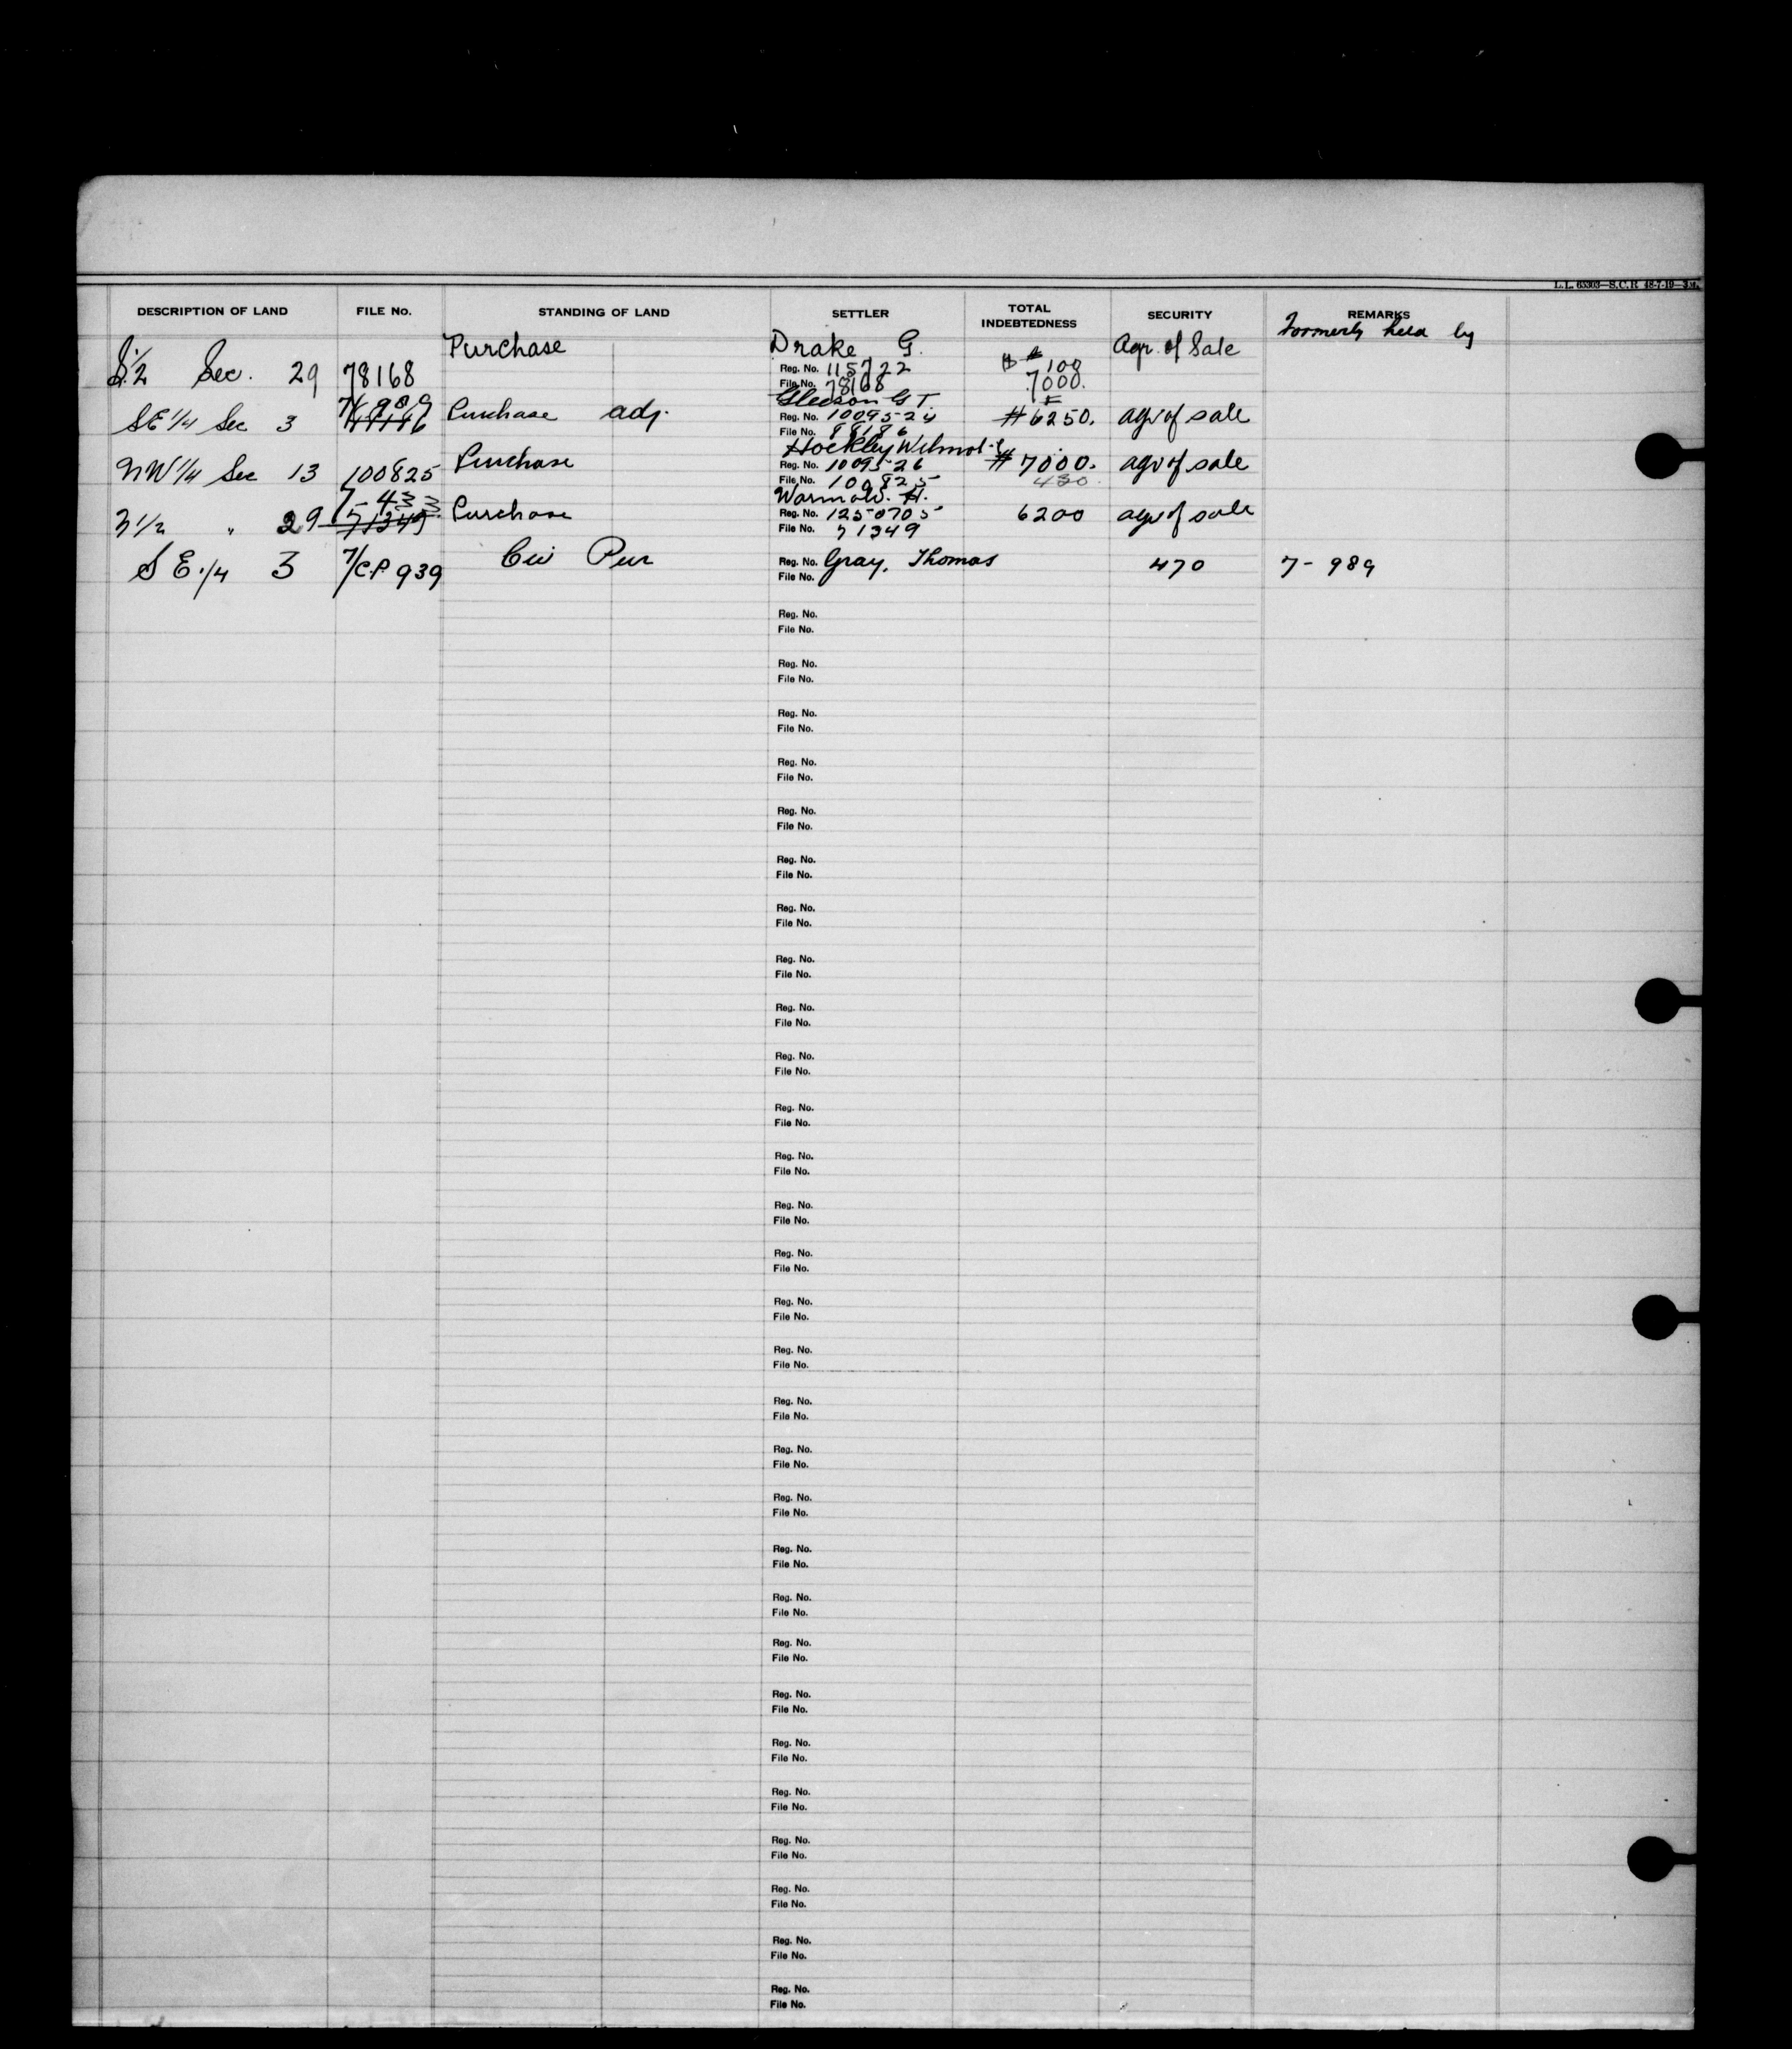 L.L. 65303—S.C.R. 48-7-19—3M.
DESCRIPTION OF LAND FILE No. STANDING OF LAND SETTLER TOTAL INDEBTEDNESS SECURITY REMARKS
Formerly held by
Purchase Drake G. Agr. of Sale
S.1/2 Sec. 29 78168 Reg. No. 115722 100
File No. 78168 7000.
7/989 Gleeson G T
SE 1/4 Sec 3 Purchase adj. Reg. No. 10095-24 #6250. agr of sale
File No. 88186
Hockley Wilmot
NW 1/4 Sec 13 100825 Purchase Reg. No. 10095-26 #7000. agr of sale
File No. 100825 430
7-433
N 1/2 " 29 71349 Purchase Reg. No. 1250705 6200 agr of sale
File No. 71349
SE 1/4 3 7/C.P 939 Civ Pur Reg. No. Gray, Thomas 470 7-989
File No.
Reg. No.
File No.
Reg. No.
File No.
Reg. No.
File No.
Reg. No.
File No.
Reg. No.
File No.
Reg. No.
File No.
Reg. No.
File No.
Reg. No.
File No.
Reg. No.
File No.
Reg. No.
File No.
Reg. No.
File No.
Reg. No.
File No.
Reg. No.
File No.
Reg. No.
File No.
Reg. No.
File No.
Reg. No.
File No.
Reg. No.
File No.
Reg. No.
File No.
Reg. No.
File No.
Reg. No.
File No.
Reg. No.
File No.
Reg. No.
File No.
Reg. No.
File No.
Reg. No.
File No.
Reg. No.
File No.
Reg. No.
File No.
Reg. No.
File No.
Reg. No.
File No.
Reg. No.
File No.